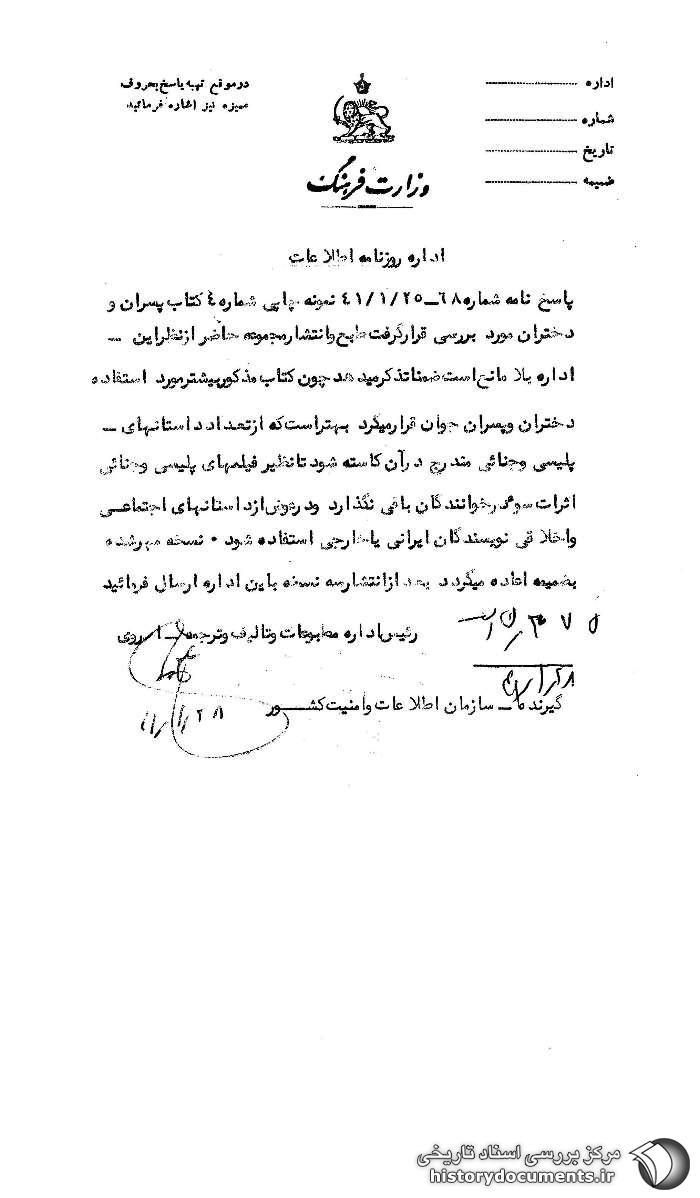 اداره
شماره
تاریخ
ضمیمه
در موقع تهیه پاسخ بحروف
ممیزه نیز اشاره فرمائید
وزارت فرهنگ
اداره روزنامه اطلاعات
پاسخ نامه شماره ٦٨ـ ٤١/١/٢٥ نمونه چاپی شماره ٤ کتاب پسران و
دختران مورد بررسی قرار گرفت طبع و انتشار مجموعه حاضر از نظر این ـ
اداره بلا مانع است ضمنا تذکر میدهد چون کتاب مذکور بیشتر مورد استفاده
دختران و پسران جوان قرار میگرد بهتر است که از تعداد داستانهای ـ
پلیسی و جنائی مندرج در آن کاسته شود تا نظیر فیلمهای پلیسی و جنائی
اثرات سوء در خوانندگان باقی نگذارد و در عوض از داستانهای اجتماعی
و اخلاقی نویسندگان ایرانی یا خارجی استفاده شود ۰ نسخه مهر شده
بضمیمه اعاده میگردد بعد از انتشار سه نسخه باین اداره ارسال فرمائید
رئیس اداره مطبوعات و تالیف و ترجمه ـ
گیرنده ـ سازمان اطلاعات و امنیت کشور
مرکز بررسی اسناد تاریخی
historydocuments.ir